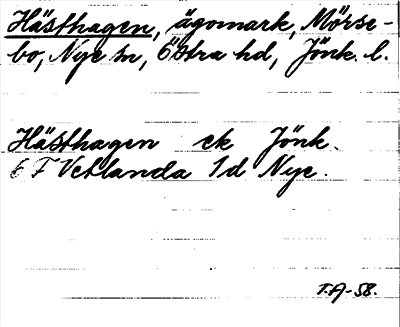 Hästhagen, ägomark, Mörse-
bo, Nye sn, Östra hd, Jönk. l.
Hästhagen ek Jönk.
6 F Vetlanda 1d Nye.
T.A-58.